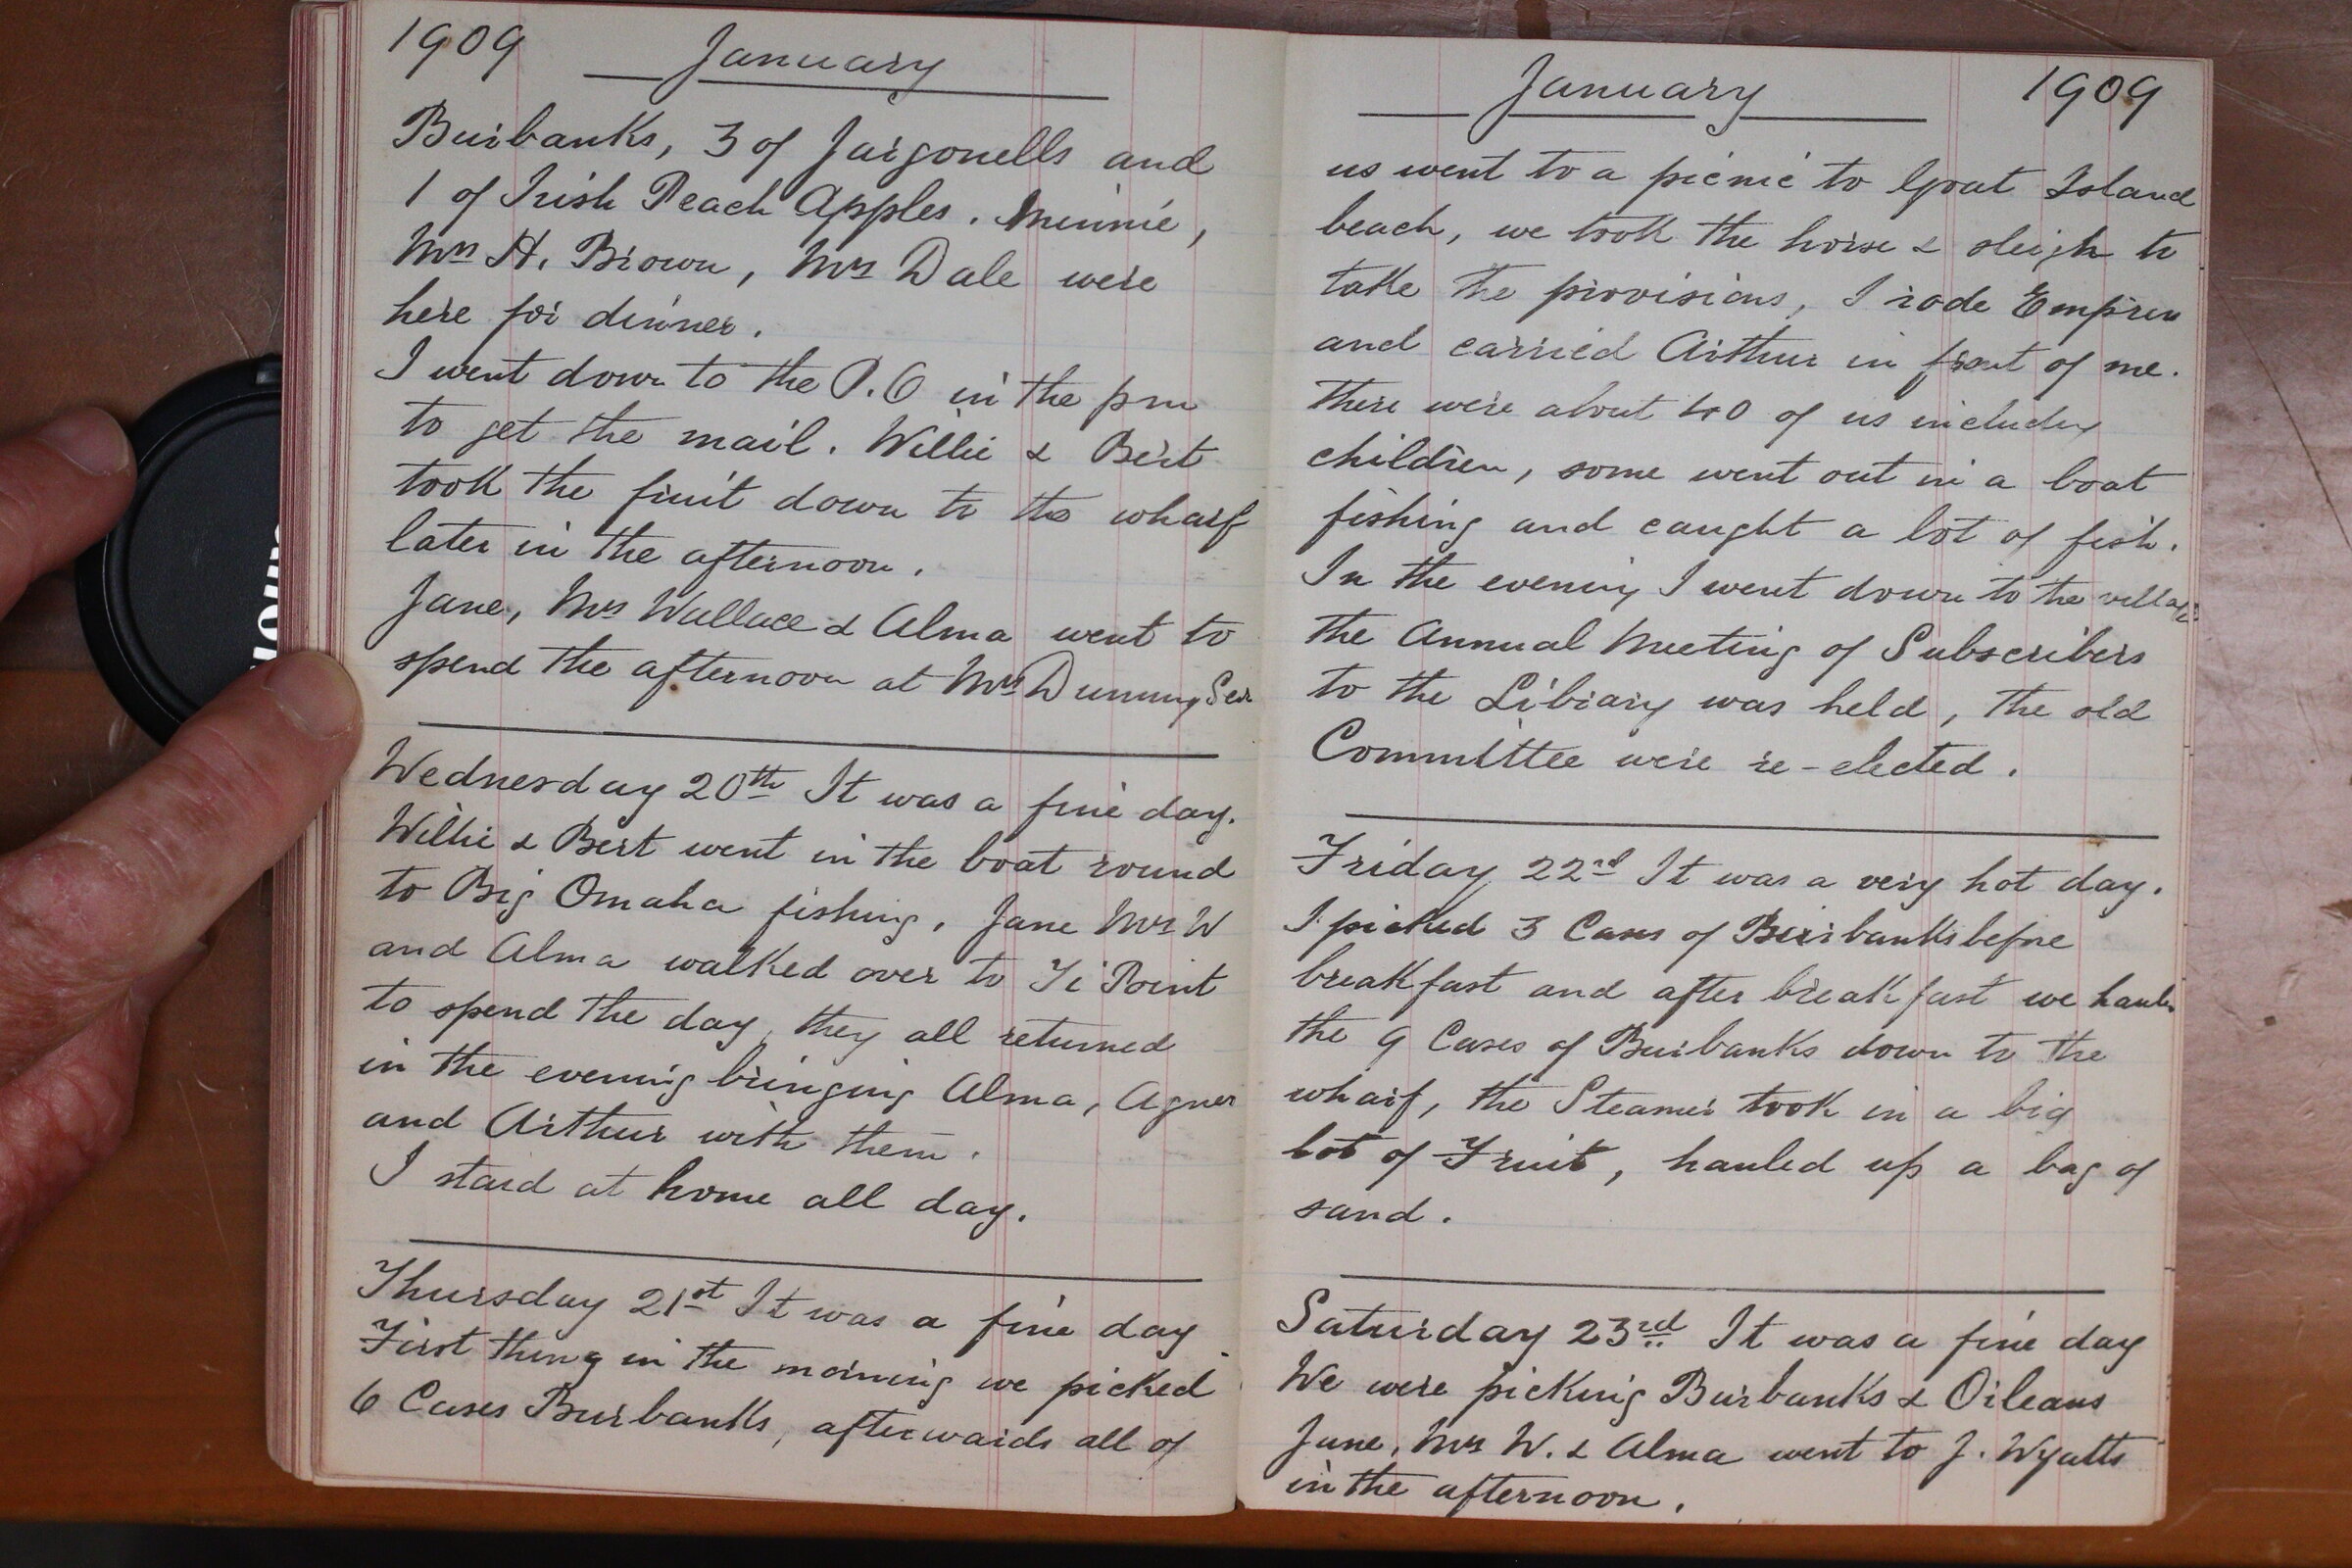 1909 January
Burbanks, 3 of Jargonells and
1 of Irish Peach Apples. Minnie,
Mrs H. Brown, Mrs Dale were
here for dinner.
I went down to the P.O in the pm
to get the mail. Willie & Bert
took the fruit down to the wharf
later in the afternoon.
Jane, Mrs Wallace & Alma went to
spend the afternoon at Mrs Dunning Sen
Wednesday 20th It was a fine day.
Willie & Bert went in the boat round
to Big Omaha fishing. Jane Mrs W
and Alma walked over to Ti Point
to spend the day, they all returned
in the evening bringing Alma, Agnes
and Arthur with them.
I staid at home all day.
Thursday 21st It was a fine day
First thing in the morning we picked
6 Cases Burbanks, afterwards all of
January 1909
us went to a picnic to Goat Island
beach, we took the horse & sleigh to
take the provisions, I rode Empress
and carried Arthur in front of me.
There were about 40 of us including
children, some went out in a boat
fishing and caught a lot of fish.
In the evening I went down to the village
the Annual Meeting of Subscribers
to the Library was held, the old
Committee were re-elected.
Friday 22nd It was a very hot day.
I picked 3 Cases of Burbanks before
breakfast and after breakfast we hauled
the 9 Cases of Burbanks down to the
wharf, the Steamer took in a big
lot of Fruit, hauled up a bag of
sand.
Saturday 23rd It was a fine day
We were picking Burbanks & Orleans
Jane, Mrs W. & Alma went to J. Wyatts
in the afternoon.